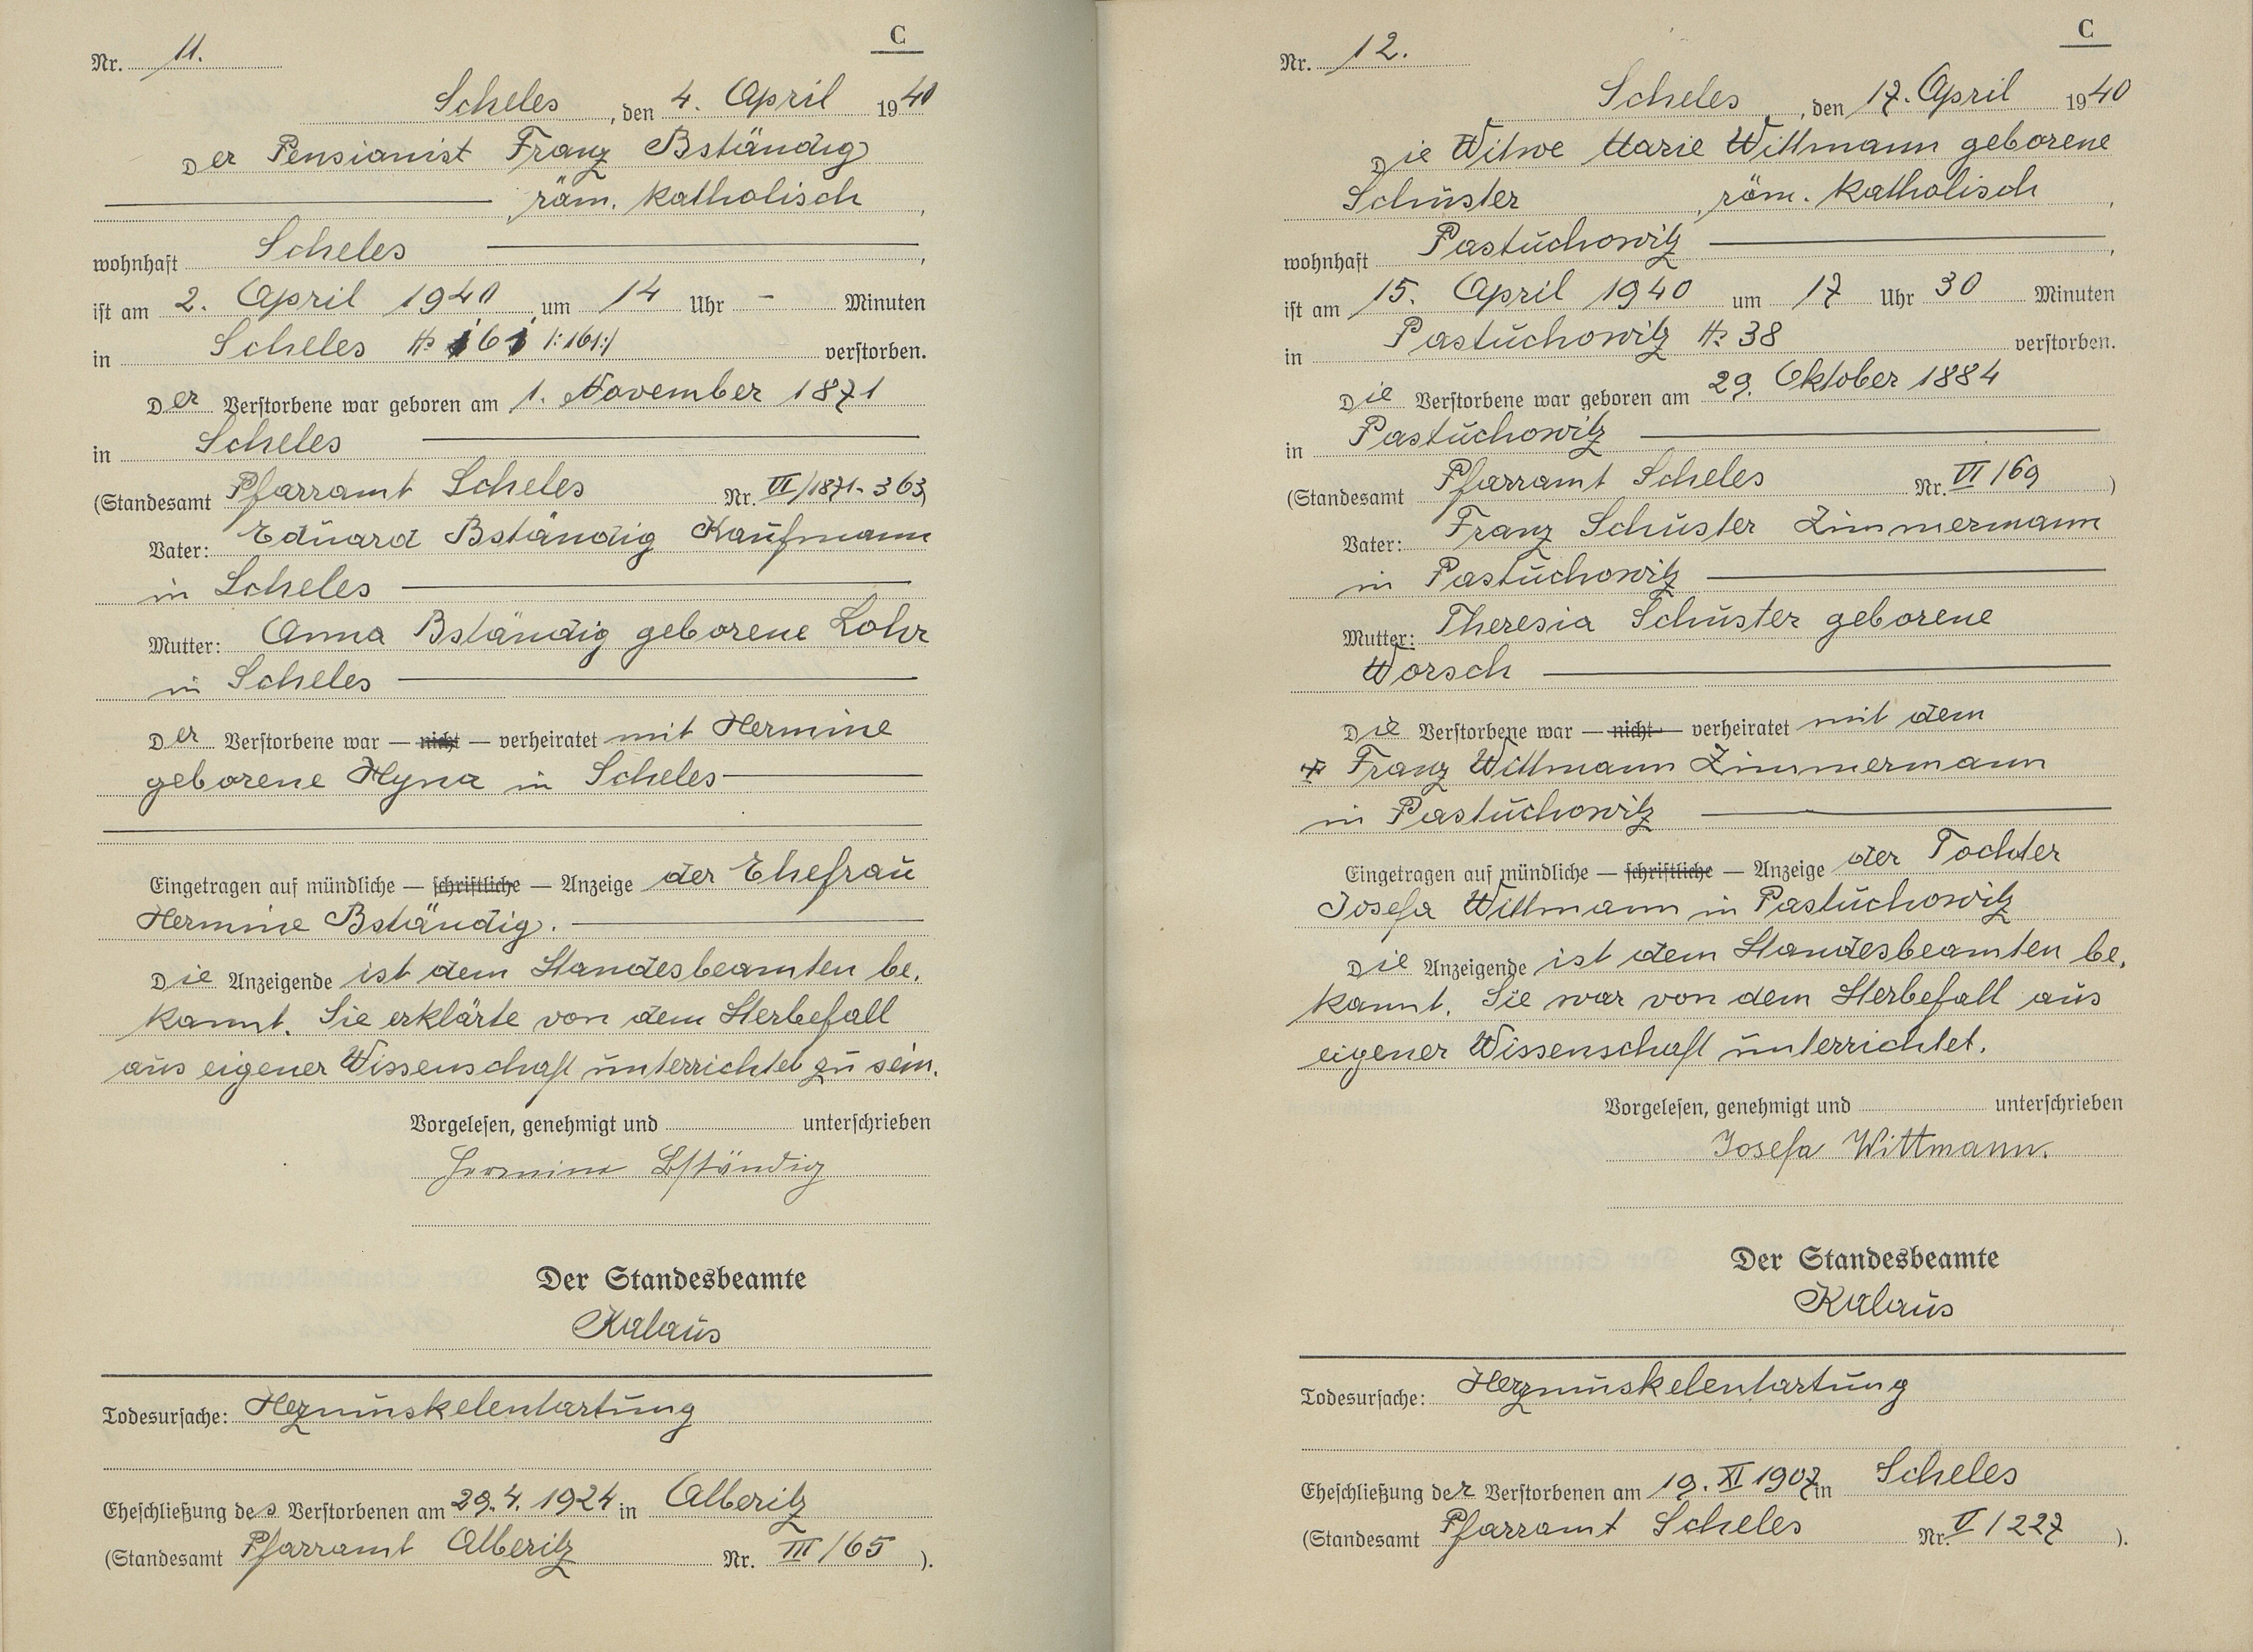 C
Nr. 11.
Scheles, den 4. April 1940
Der Pensionist Franz Bständig
, röm. katholisch,
wohnhaft Scheles,
ist am 2. April 1940 um 14 Uhr - Minuten
in Scheles № 161 /:161:/ verstorben.
Der Verstorbene war geboren am 1. November 1871
in Scheles
(Standesamt Pfarramt Scheles Nr. VI/1871-363)
Vater: Eduard Bständig Kaufmann
in Scheles
Mutter: Anna Bständig geborene Lohr
in Scheles
Der Verstorbene war — nicht — verheiratet mit Hermine
geborene Hyna in Scheles
Eingetragen auf mündliche — schriftliche — Anzeige der Ehefrau
Hermine Bständig.
Die Anzeigende ist dem Standesbeamten be.
kannt. Sie erklärte von dem Sterbefall
aus eigener Wissenschaft unterrichtet zu sein.
Vorgelesen, genehmigt und unterschrieben
Hermine Bständig
Der Standesbeamte
Kalaus
Todesursache: Hezmuskelentartung
Eheschließung des Verstorbenen am 29.4.1924 in Alberitz
(Standesamt Pfarramt Alberitz Nr. III/65).
C
Nr. 12.
Scheles, den 17. April 1940
Die Witwe Marie Wittmann geborene
Schuster, röm. katholisch,
wohnhaft Pastuchowitz,
ist am 15. April 1940 um 17 Uhr 30 Minuten
in Pastuchowitz № 38 verstorben.
Die Verstorbene war geboren am 29. Oktober 1884
in Pastuchowitz
(Standesamt Pfarramt Scheles Nr. VI/69)
Vater: Franz Schuster Zimmermann
in Pastuchowitz
Mutter: Theresia Schuster geborene
Worsch
Die Verstorbene war — nicht — verheiratet mit dem
✠ Franz Wittmann Zimmermann
in Pastuchowitz
Eingetragen auf mündliche — schriftliche — Anzeige der Tochter
Josefa Wittmann in Pastuchowitz
Die Anzeigende ist dem Standesbeamten be,
kannt. Sie war von dem Sterbefall aus
eigener Wissenschaft unterrichtet.
Vorgelesen, genehmigt und unterschrieben
Josefa Wittmann.
Der Standesbeamte
Kalaus
Todesursache: Herzmuskelentartung
Eheschließung der Verstorbenen am 19. XI 1907 in Scheles
(Standesamt Pfarramt Scheles Nr. V/227).